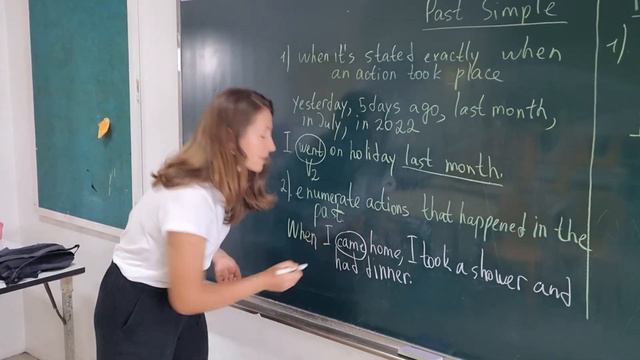 Past Simple
1) when it's stated exactly when
an action took place
yesterday, 5 days ago, last month,
in July, in 2022
I went on holiday last month.
V2
2) enumerate actions that happened in the
past
When I came home, I took a shower and
had dinner.
1)